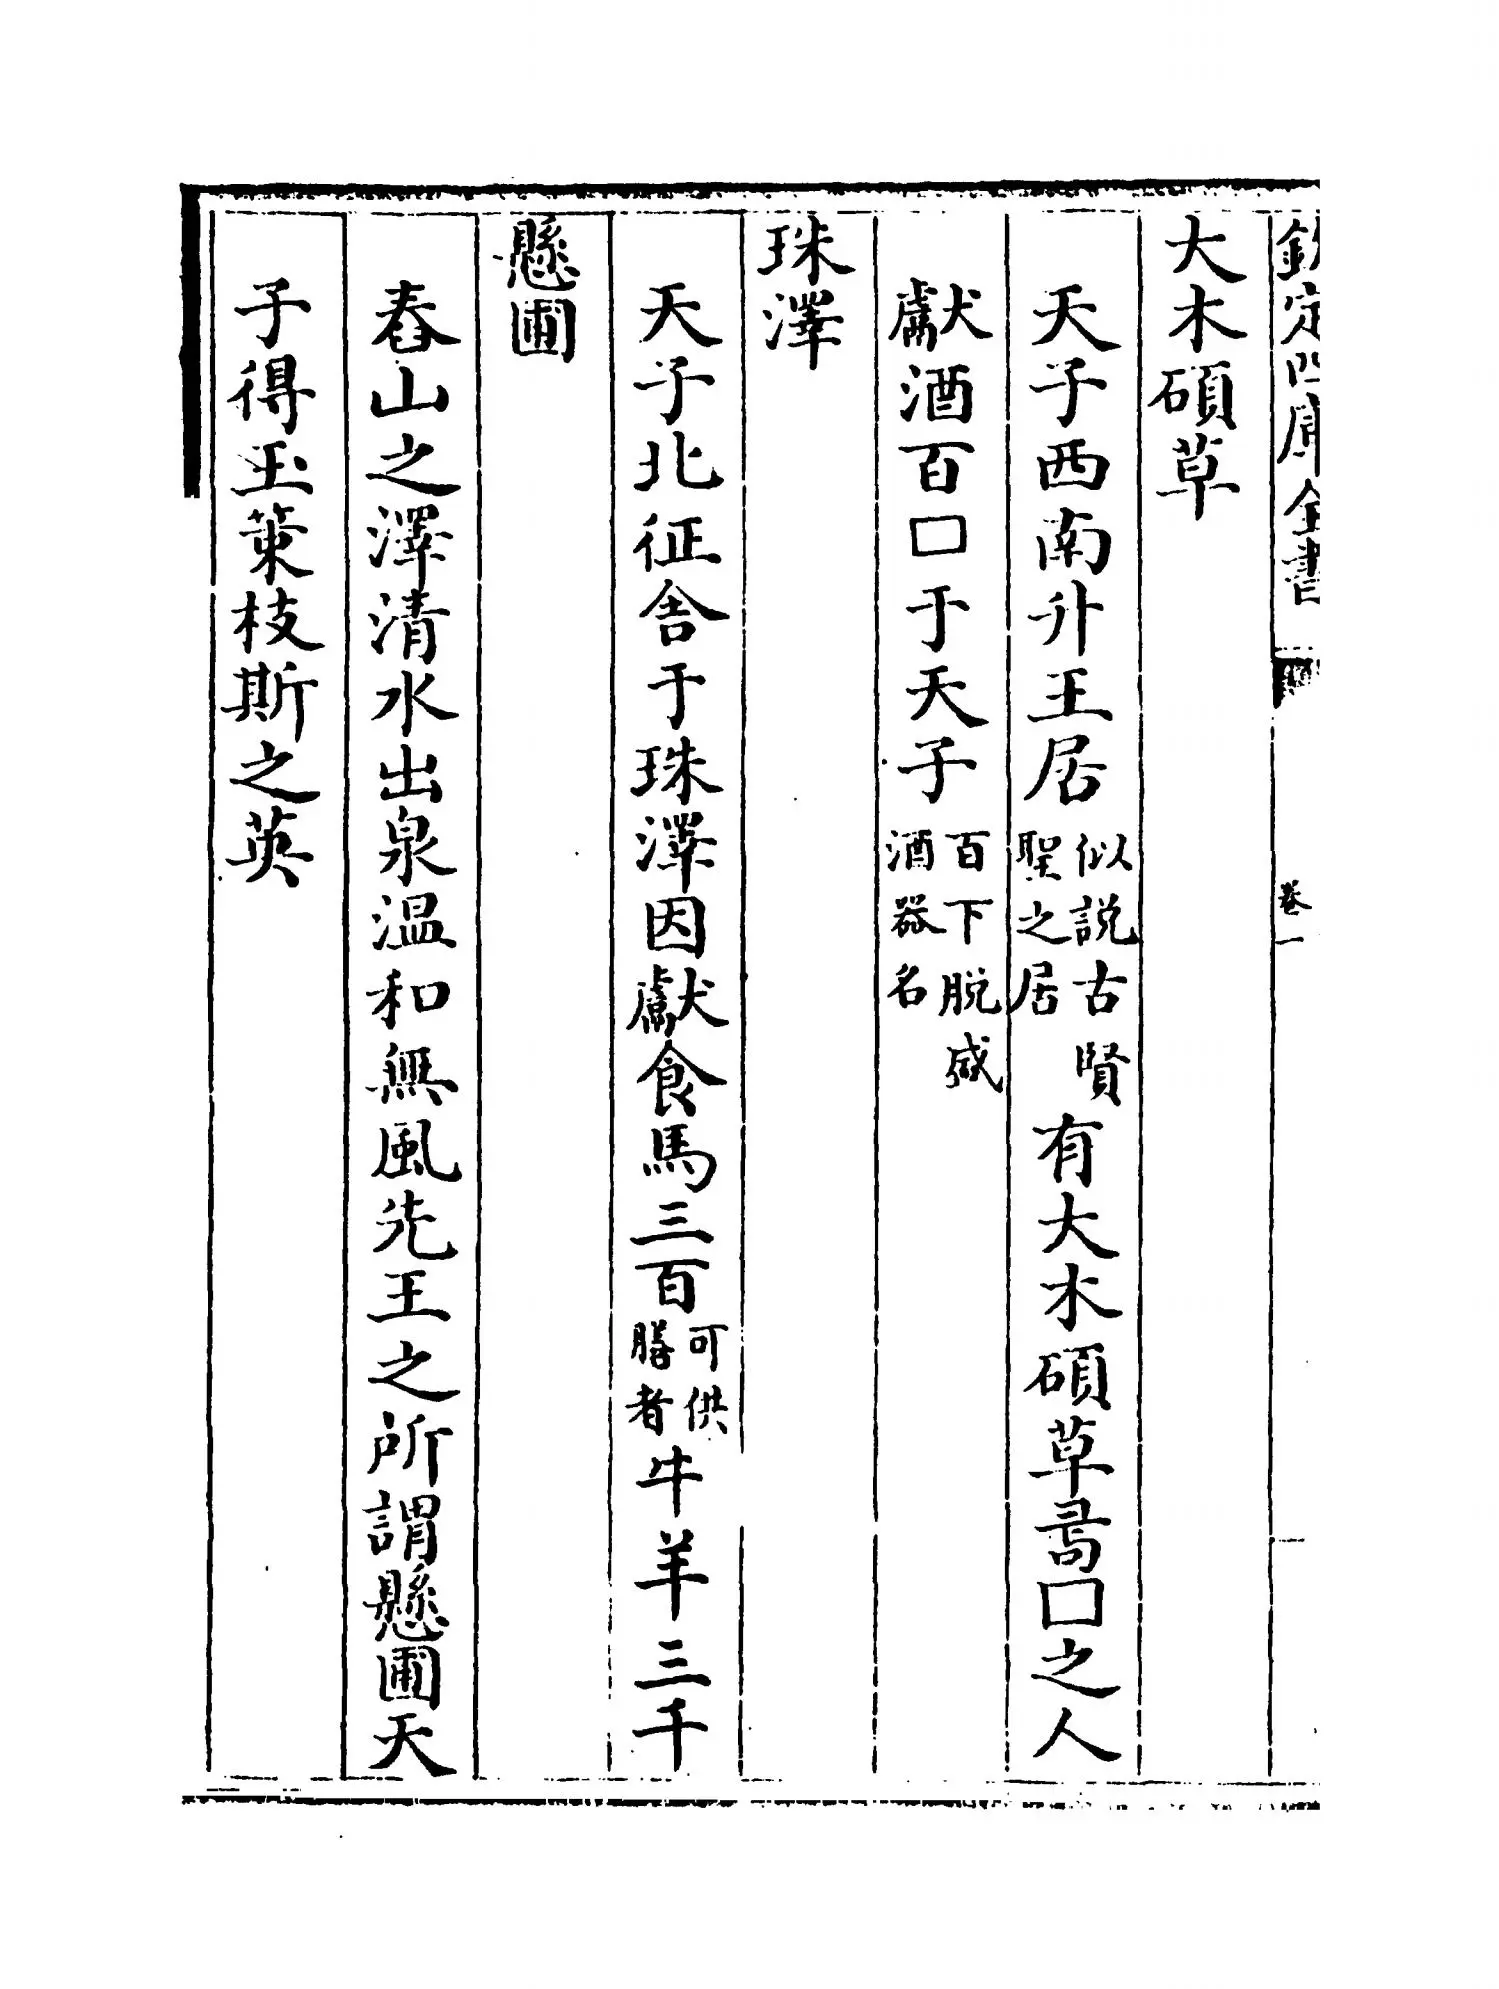 欽定四庫全書 卷一
大木碩草
天子西南升王居似說古賢聖之居有大木碩草□之人
獻酒百□于天子百下脱盛酒器名
珠澤
天子北征舍于珠澤因獻食馬三百可供膳者牛羊三千
懸圃
舂山之澤清水出泉温和無風先王之所謂懸圃天
子得玉策枝斯之英